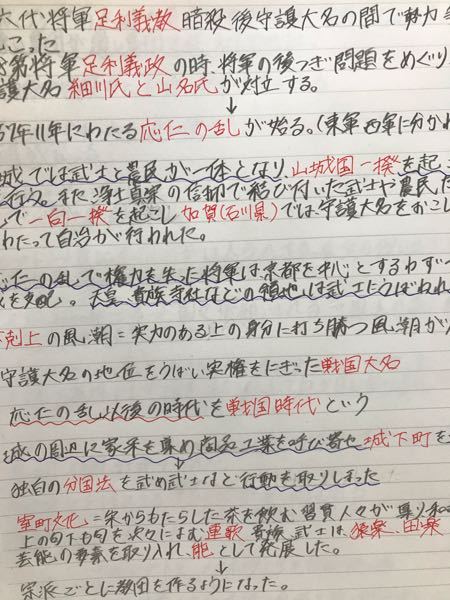 六代将軍足利義教 暗殺後守護大名の間で勢力
こった
将軍足利義政の時、将軍の後つぎ問題をめぐり
護大名 細川氏と山名氏が対立する。
↓
67年11年にわたる応仁の乱が始る。(東軍西軍に分かれ
城では武士と農民が一体となり、山城国一揆を起
行う。また浄土真宗の信仰で結び付いた武士や農民、
で一向一揆を起こし 加賀(石川県)では守護大名を
わたって自治が行われた。
応仁の乱で権力を失った将軍は京都を中心とするわず
を支配。天皇、貴族寺社などの領地は武士にうばわれ
剋上の風潮=実力のある上の身分に打ち勝つ風潮が
守護大名の地位をうばい実権をにぎった戦国大名
応仁の乱以後の時代を戦国時代という
城の周辺に家来を集め商工業を呼び寄せ城下町を
↓
独自の分国法を武士など行動を取りしまった
室町文化=宋からもたらした茶を飲む習慣人々が集り
上の句下の句を次々によむ連歌 貴族、武士は、猿楽、田楽
芸能の要素を取り入れ、能として発展した。
↓
宗派ごとに教団を作るようになった。